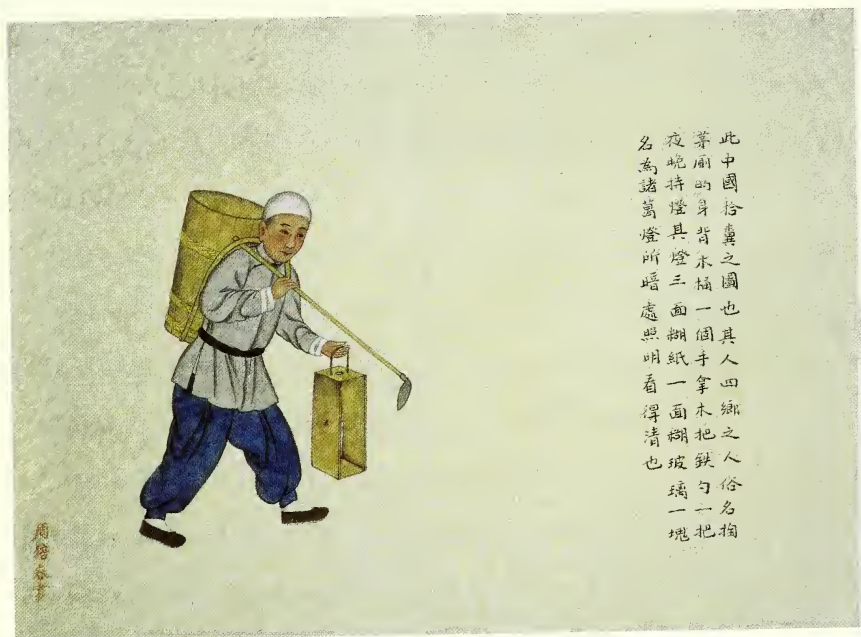 此中國拾糞之圖也其人四鄉之人俗名掏
茅厠的身背木桶一個手拿木把鉄勺一把
夜晚持燈其燈三面糊紙一面糊玻璃一塊
名為諸葛燈所暗處照明看得清也
周培春畫